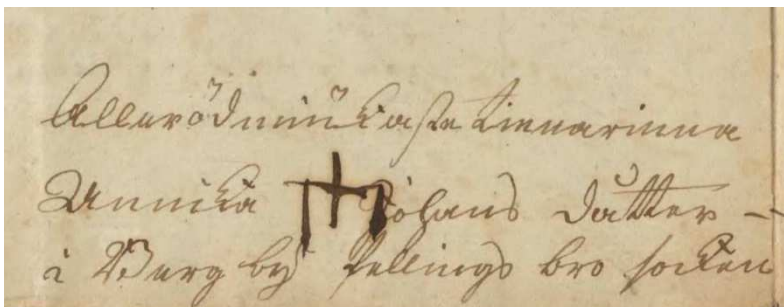 Allerödmiükaste tienarinna
Annika Johans dåtter -
i Berg by fellings bro socken